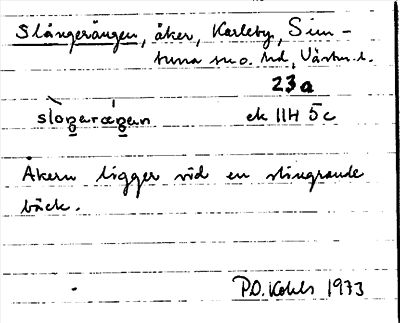 Slångerängen, åker, Karleby, Sim-
tuna sn o. hd, Västm. l.
23a
sloŋərœŋən ek 11H 5c
Åkern ligger vid en slingrande
bäck.
P.O. Kohls 1973